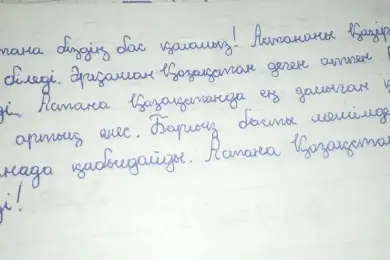 тана біздің бас қаламыз! Астананы қазір
біледі. Әрқашан Қазақстан деген атпен
ді. Астана Қазақстанда ең дамыған қ
артық емес. Барлық басты мәлімд
нада қабылдайды. Астана Қазақстан
ді!